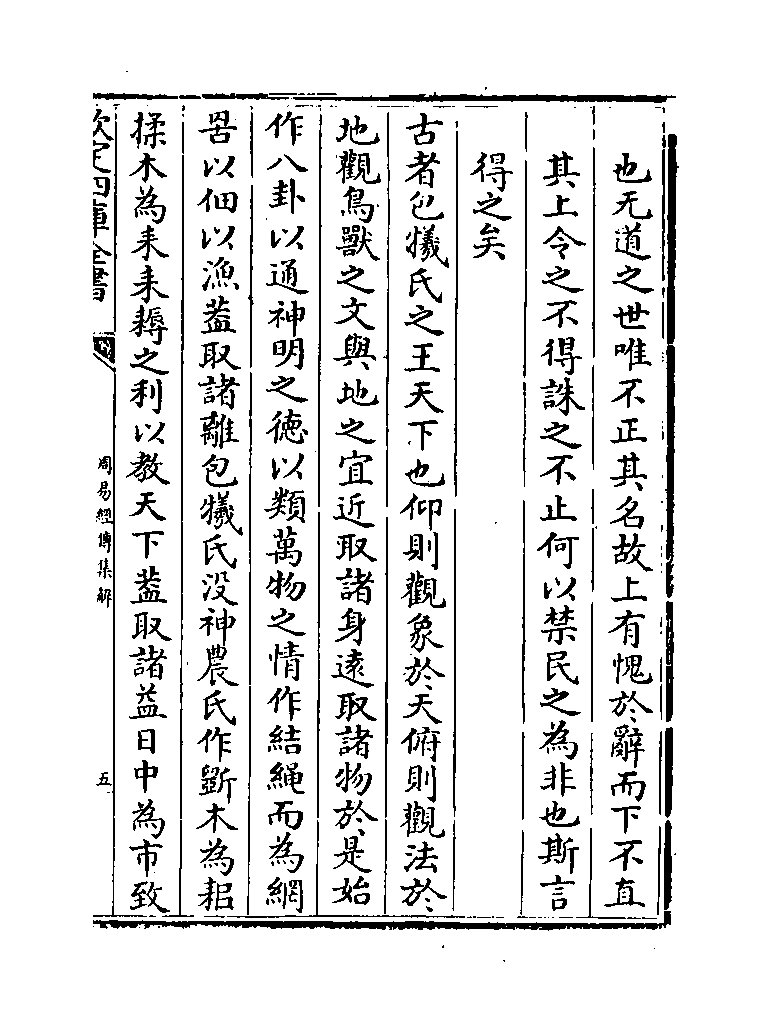 也无道之世唯不正其名故上有愧於辭而下不直
其上令之不得誅之不止何以禁民之為非也斯言
得之矣
古者包犧氏之王天下也仰則觀象於天俯則觀法於
地觀鳥獸之文與地之宜近取諸身逺取諸物於是始
作八卦以通神明之德以類萬物之情作結繩而為網
罟以佃以漁葢取諸離包犧氏沒神農氏作斵木為耜
揉木為耒耒耨之利以教天下葢取諸益日中為市致
欽定四庫全書
周易經傳集解
五